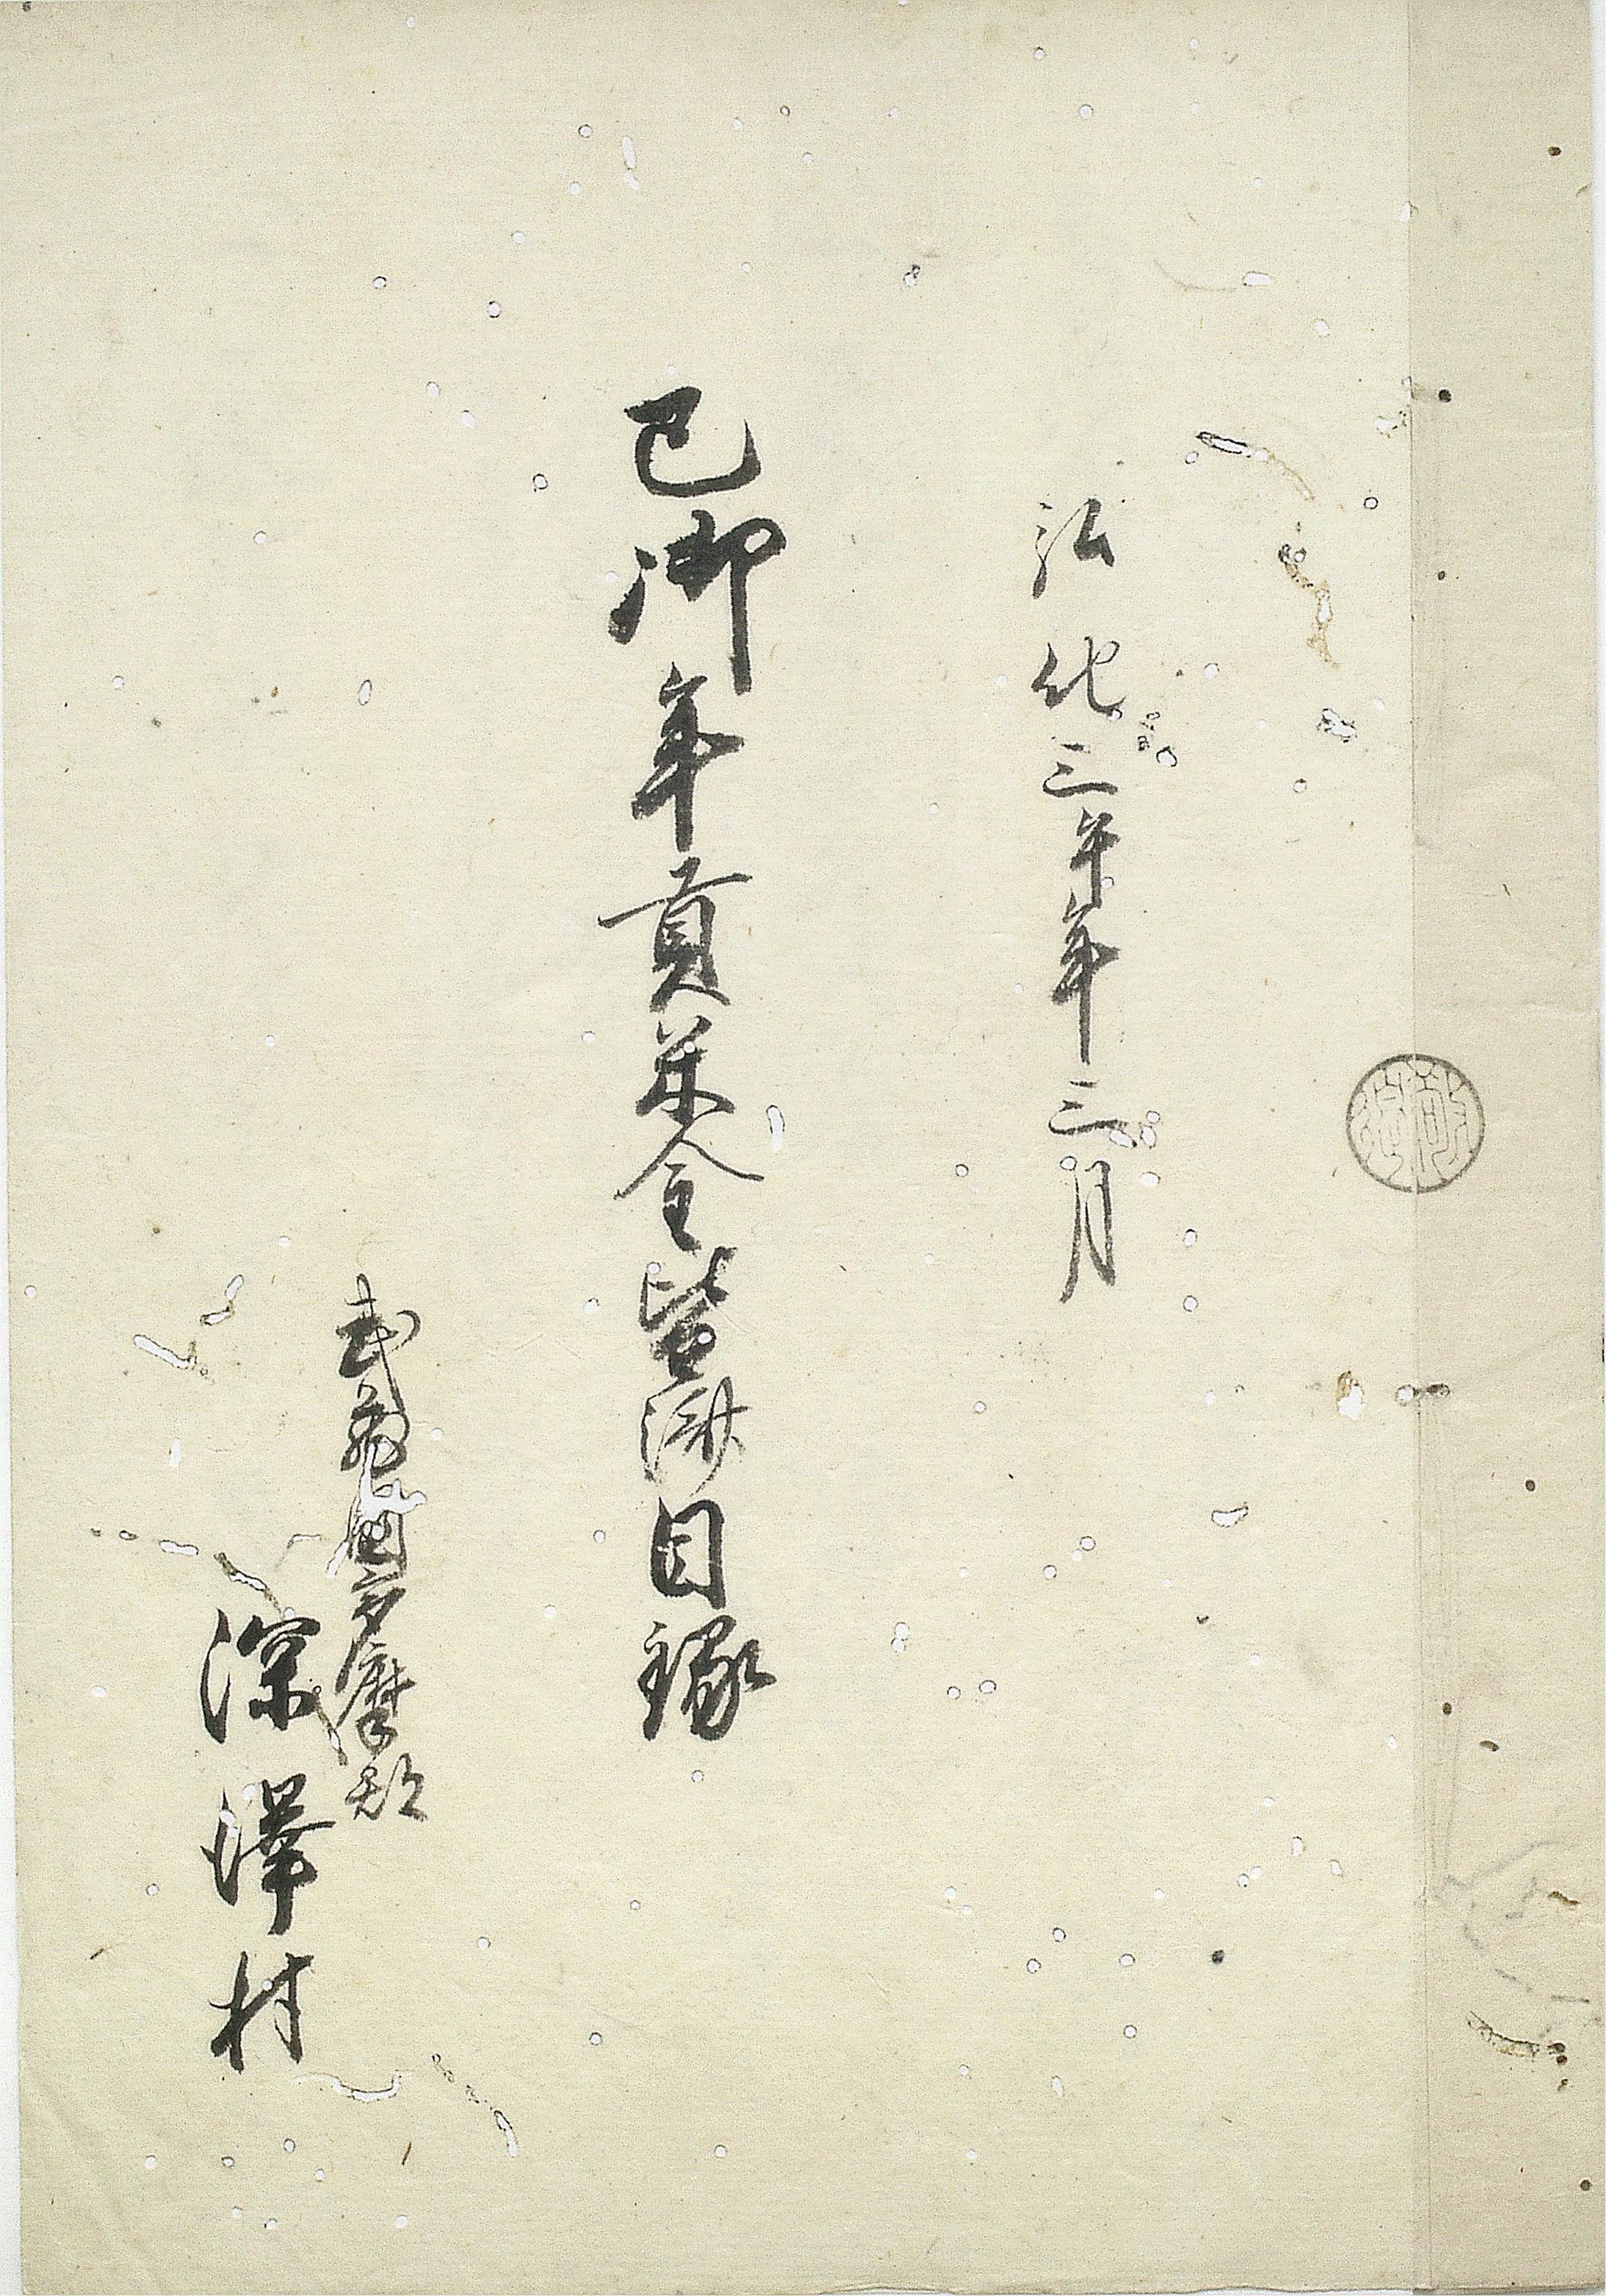 弘化三午年三月
巳御年貢米金皆済目録
武蔵国多摩郡
深澤村